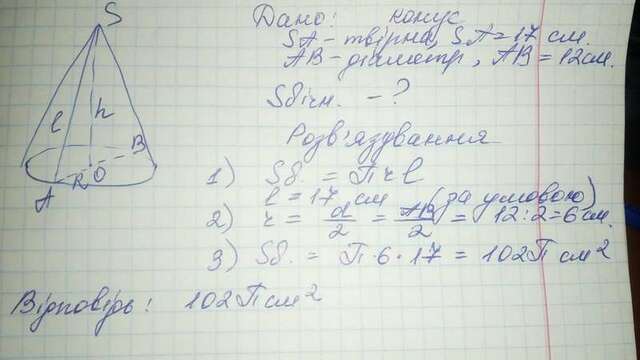 S
l
h
B
R
O
A
Дано: конус
SA - твірна, SA = 17 см.
AB - діаметр, AB = 12 см.
Sбічн. - ?
Розв'язування
1) Sб. = П r l
l = 17 см (за умовою)
2) r = d/2 = AB/2 = 12 : 2 = 6 см.
3) Sб. = П · 6 · 17 = 102 П см²
Відповідь: 102 П см²